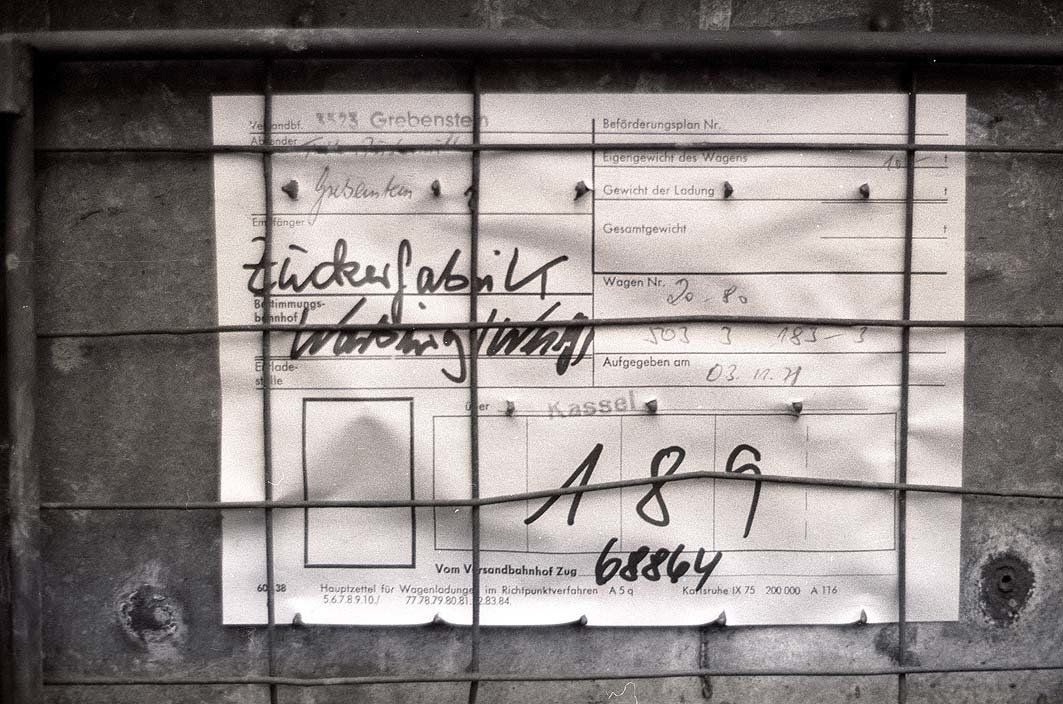 Versandbf. 3523 Grebenstein
Beförderungsplan Nr.
Absender
Eigengewicht des Wagens t
Grebenstein
Gewicht der Ladung t
Empfänger
Gesamtgewicht t
Zuckerfabrik
Wagen Nr. 20-80
Bestimmungs-
bahnhof
Warburg
503 3 183-3
Entlade-
stelle
Aufgegeben am 03. 11.
über Kassel
1 8 9
Vom Versandbahnhof Zug 68864
60 38 Hauptzettel für Wagenladungen im Richtpunktverfahren A 5 q Karlsruhe IX 75 200 000 A 116
5.6.7.8.9.10./ 77.78.79.80.81.82.83.84.